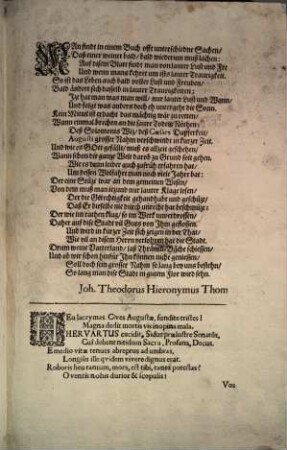 MAn findt in einem Buch offt unterschidne Sachen/
Daß einer weinet bald/ bald wiederum muß lachen:
Auf disem Blatt findt man von lauter Lust und Fre
Und wenn mans kehret um ists lauter Traurigkeit.
So ist das Leben auch bald voller Lust und Freuden/
Bald ändert sich dasselb in lauter Traurigkeiten:
Zu hat man was man will/ nur lauter Lust und Wonn/
Und folgt was anders doch eh untergeht die Sonn.
Kein Mittel ist erdacht das mächtig wär zu retten/
Wann einmal brechen an die lezte Todes Nöthen:
Deß Salomonis Witz/ deß Cæsars Dapferkeit/
Augusti grosser Nahm verschwindt in kurzer Zeit.
Und wie es GOtt gefällt/ muß es allzeit geschehen/
Wann schon die ganze Welt darob zu Grund solt gehen.
Wie es dann leider auch gar sehr erfahren hat/
Um dessen Wolfahrt man noch viele Jahr bat:
Der eine Stütz war an dem gemeinen Wesen/
Von dem muß man jezund nur lauter Klage lesen/
Der die Gerechtigkeit gehandhabt und geschützt/
Daß Er dieselbe nie durch unrecht hat beschmützt:
Der wie im rathen klug/ so im Werk unverdrossen/
Daher auf dise Stadt vil Guts von Ihm geflossen/
Und wird in kurzer Zeit sich zeigen in der That/
Wie vil an disem Herren verlohren hat die Stadt.
Drum weine Vatterland/ laß Threnen-Bäche schiessen/
Und ob wir schon hinfür Ihn können nicht geniessen/
Soll doch sein grosser Nahm so lang bey uns bestehn/
So lang man dise Stadt in gutem Flor wird sehn.
Joh. Theodorus Hieronymus Thom
HEu lacrymas Cives Augustæ, fundite tristes!
Magna dedit mortis vis inopina mala.
HERVARTUS occidit, Sidus præillustre Senatûs,
Cui debent eædem Sacra, Profana, Decus.
E medio vitæ tenues abreptus ad umbras,
Longiùs ille quidem vivere dignus erat.
Roboris heu tantum, mors, est tibi, tanta potestas?
O ventis nobis durior & scopulis!
Vos